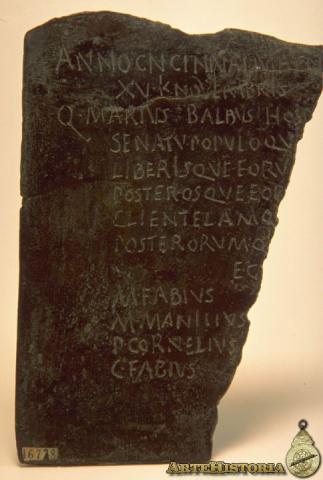 ANNO CN CINNAI
XV K NOVEMBRIS
Q MARIUS BALBUS HOS
SENATU POPULOQU
LIBERISQUE EORU
POSTEROSQUE EOR
CLIENTELAMQ
POSTERORUMQ
EG
M FABIUS
M MANILIUS
P CORNELIUS
C FABIUS
16773
ARTEHISTORIA